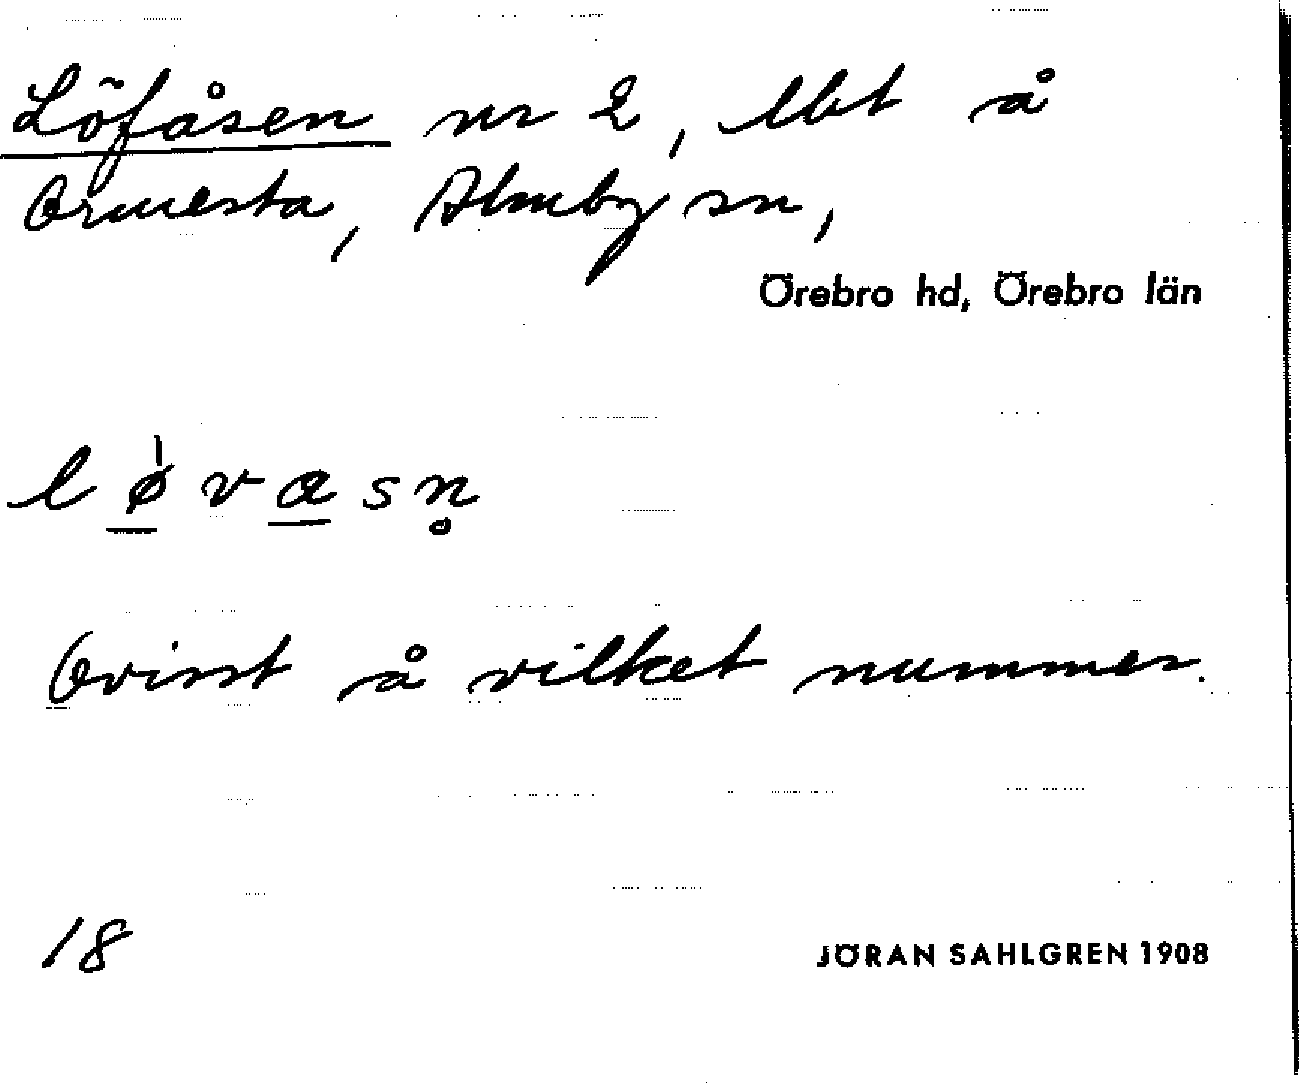 Löfåsen nr 2, lbt å
Ormesta, Almby sn,
Örebro hd, Örebro län
lø̀vasn̥
Ovisst å vilket nummer.
18
JÖRAN SAHLGREN 1908